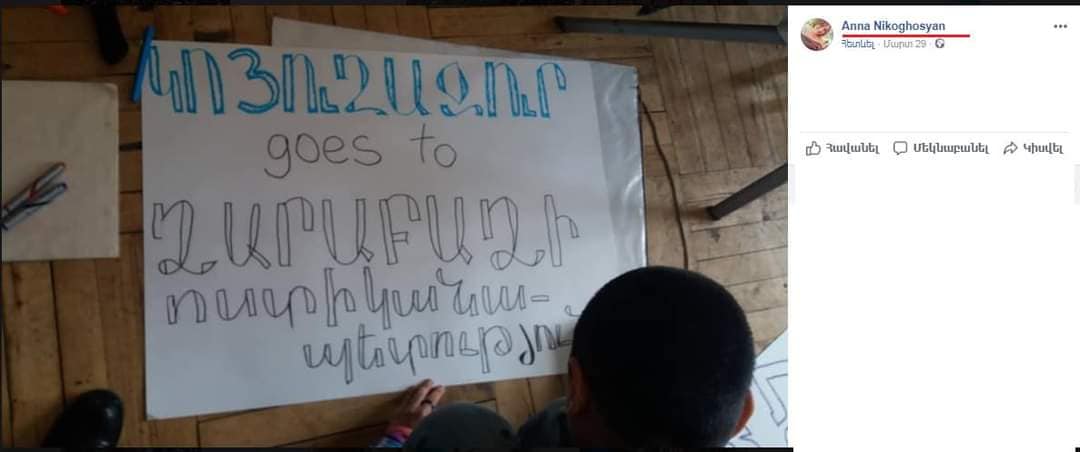 ԿՈՅՈՒՂԱՋՈՒՐ
goes to
ՂԱՐԱԲԱՂԻ
ոստիկանա-
պետությու
Anna Nikoghosyan
Հետևել · Մարտ 29 ·
Հավանել Մեկնաբանել Կիսվել